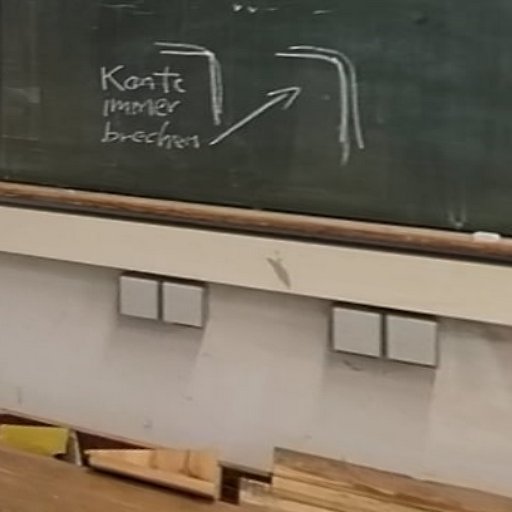 Kante
immer
brechen